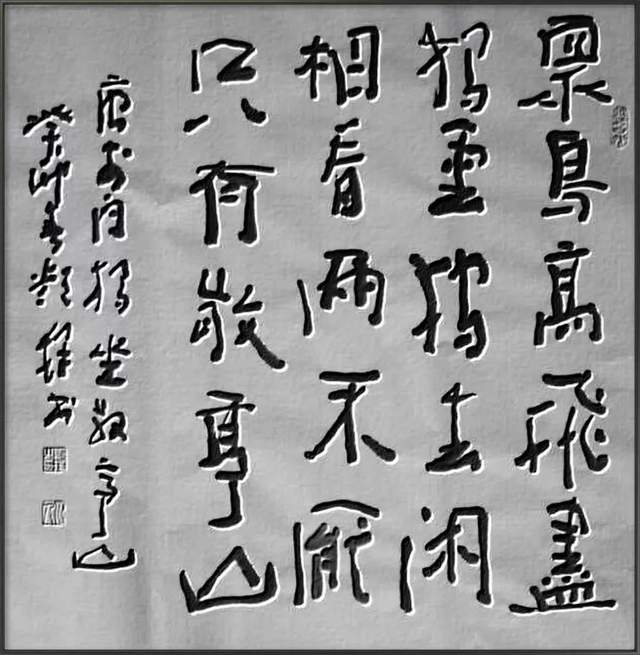 眾鳥高飛盡
獨雲獨去閑
相看兩不厭
只有敬亭山
唐李白獨坐敬亭山
癸卯春 書